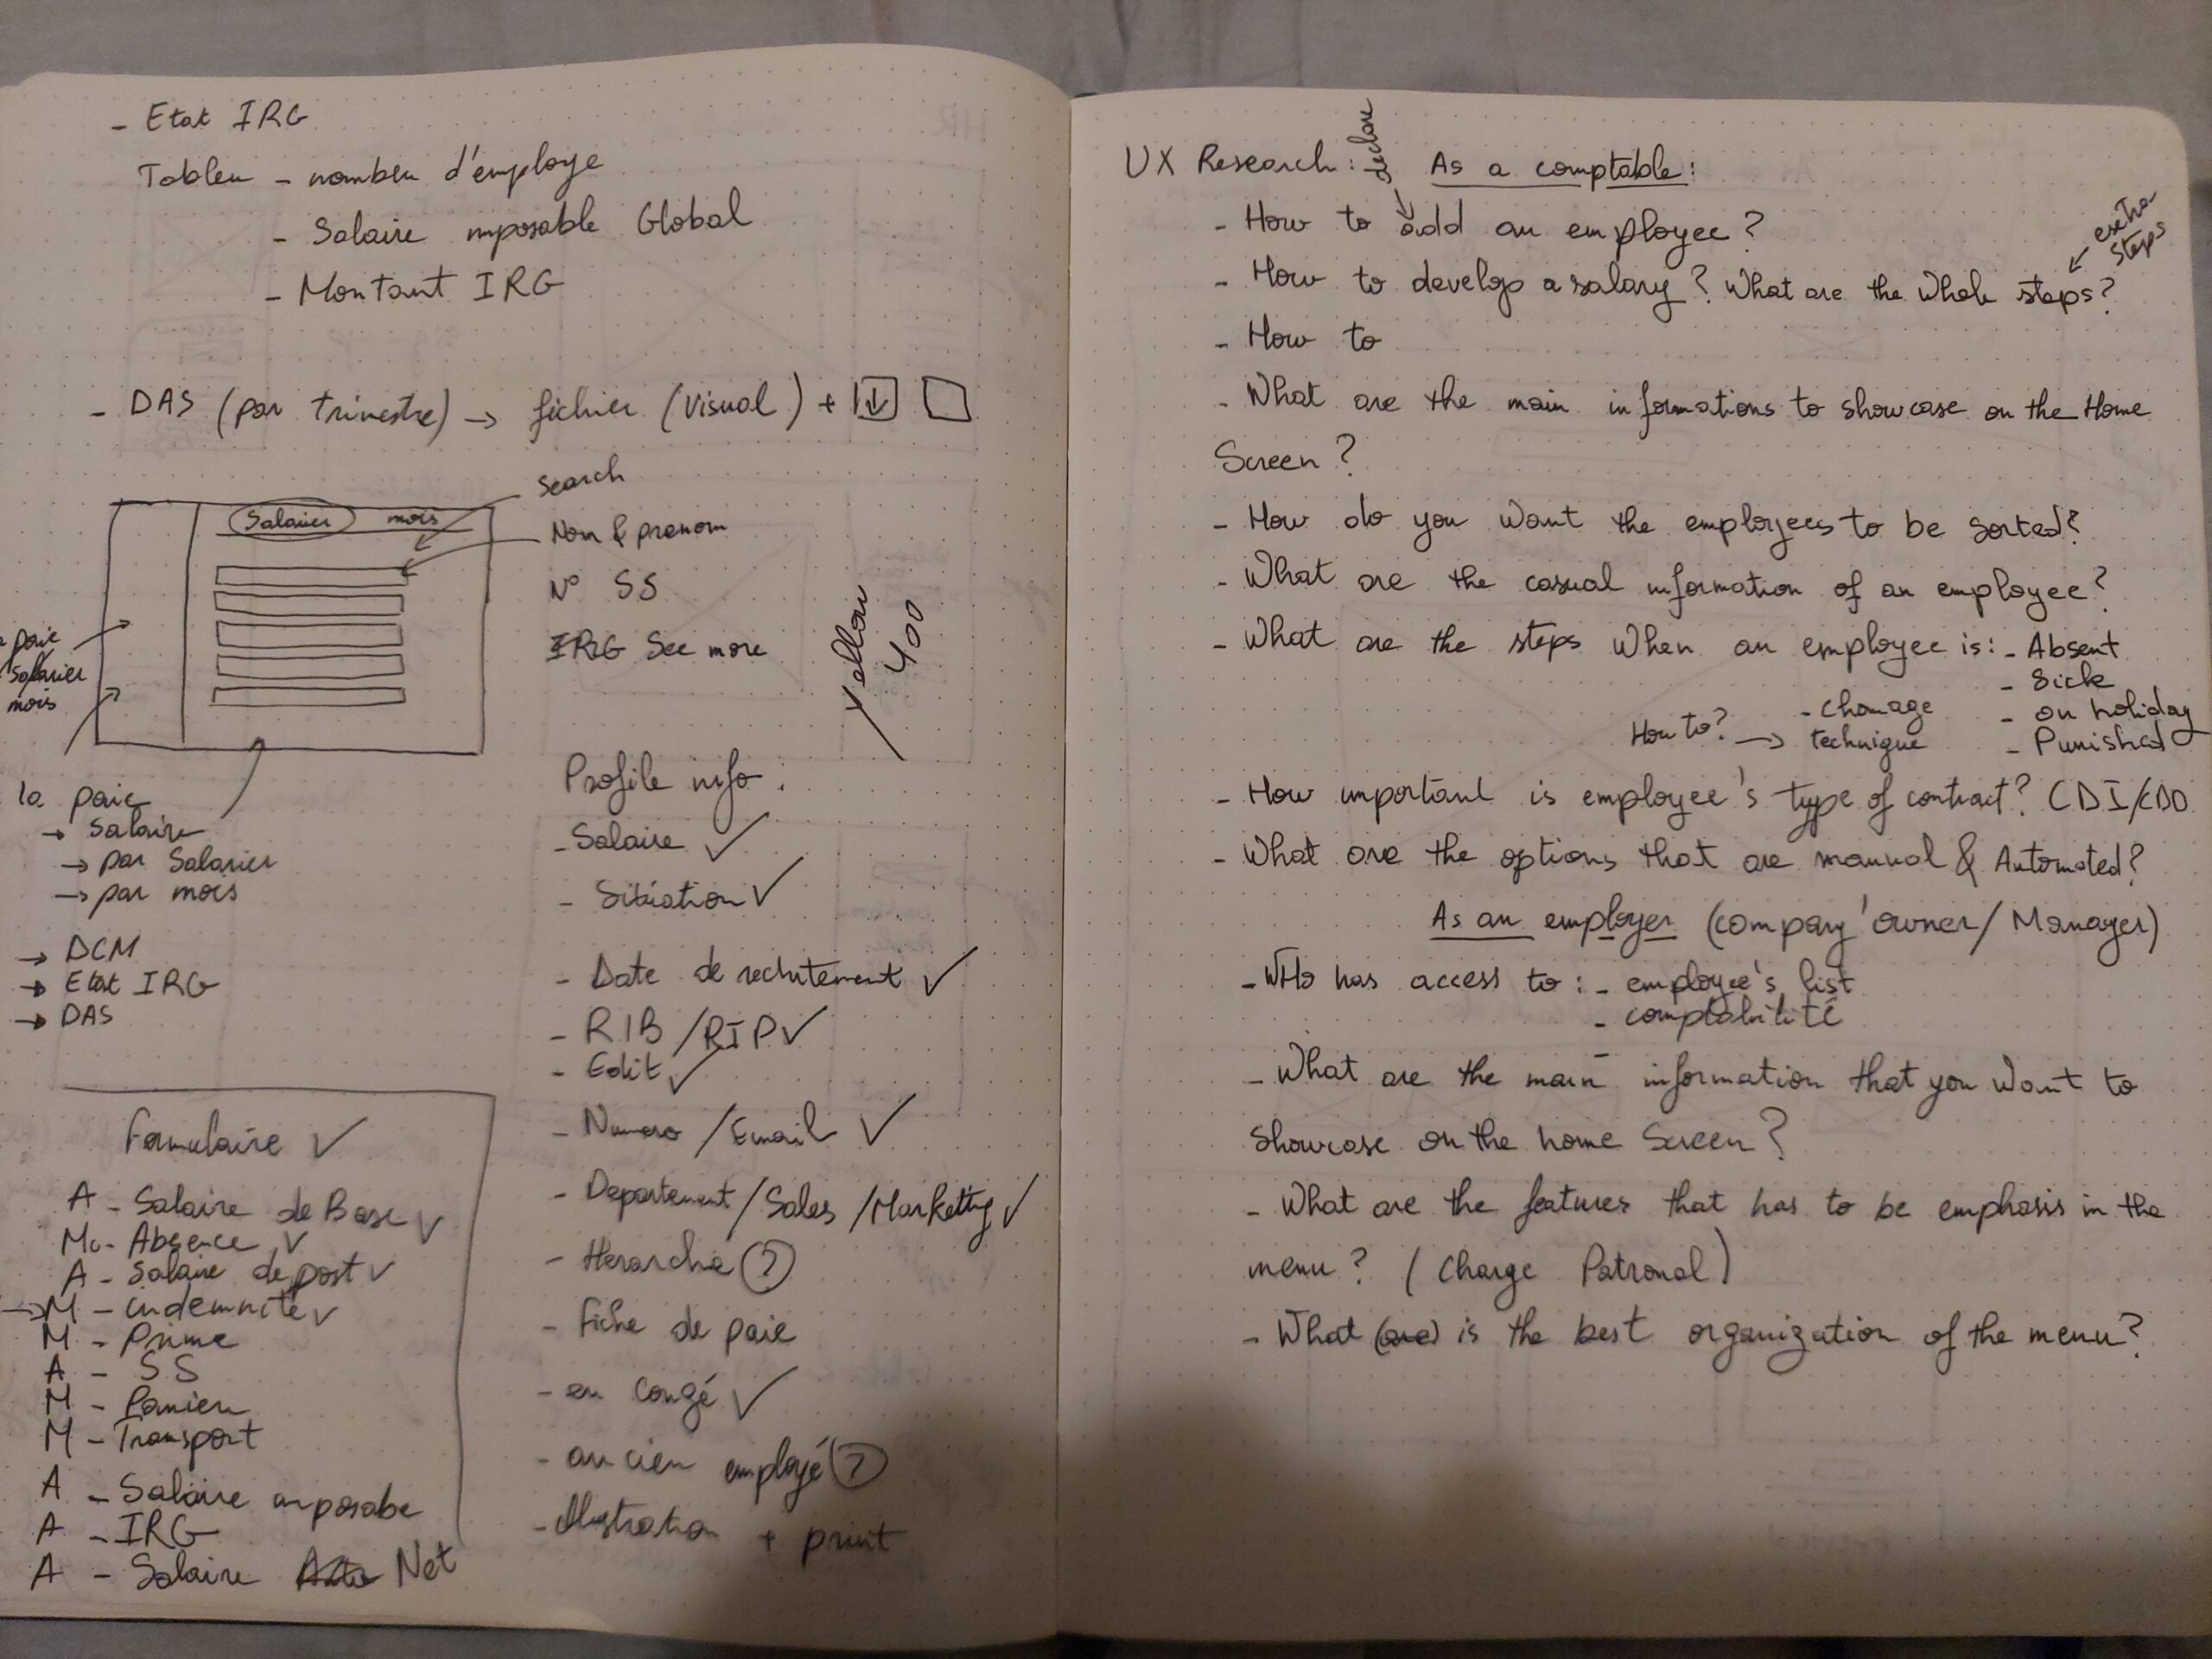 - Etat IRG
Tableu - nombeu d'employe
- Salaire mposable Global
- Montant IRG
- DAS (par trimestre) → fichier (Visual) + ↓
Search
Salarier mois
Nom & prenom
N° SS
IRG See more
Yellow
400
paie
Salarier
mois
la paie
→ Salaire
→ par Salarier
→ par mois
→ DCM
→ Etat IRG
→ DAS
Formulaire ✓
A - Salaire de Base ✓
Mc - Absence ✓
A - Salaire de post ✓
→ M - indemnité ✓
M - Prime
A - SS
M - Panier
M - Transport
A - Salaire imposabe
A - IRG
A - Salaire Net
Profile info :
- Salaire ✓
- Sitiation ✓
- Date de recrutement ✓
- RIB / RIP ✓
- Edit ✓
- Numero / Email ✓
- Departement / Sales / Marketing ✓
- Herarchie (?)
- Fiche de paie
- en congé ✓
- ancien employé (?)
- Illustration + print
UX Research : As a comptable :
declare
- How to add an employee?
extra
steps
- How to develop a salary? What are the whole steps?
- How to
- What are the main informations to showcase on the Home
Screen?
- How do you want the employees to be sorted?
- What are the casual information of an employee?
- What are the steps when an employee is: - Absent
- Sick
- on holiday
- Punished
How to? → - Chomage
technique
- How important is employee's type of contract? CDI/CDD
- What are the options that are manual & Automated?
As an employer (company' owner / Manager)
- WHo has access to : - employee's list
- comptabilité
-
- What are the main information that you want to
showcase on the home screen?
- What are the features that has to be emphasis in the
menu? (Charge Patronal)
- What (are) is the best organization of the menu?